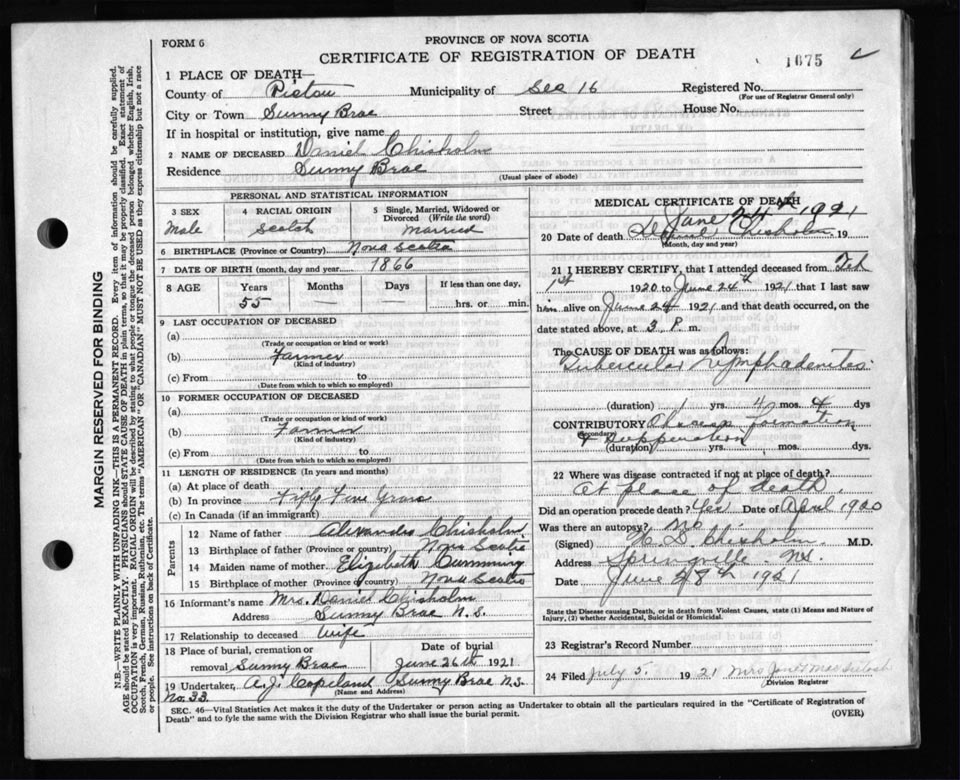 FORM 6
PROVINCE OF NOVA SCOTIA
CERTIFICATE OF REGISTRATION OF DEATH
1675
1 PLACE OF DEATH—
County of Pictou Municipality of Sec 16 Registered No.
(For use of Registrar General only)
City or Town Sunny Brae Street House No.
If in hospital or institution, give name
2 NAME OF DECEASED Daniel Chisholm
Residence Sunny Brae
(Usual place of abode)
PERSONAL AND STATISTICAL INFORMATION
3 SEX
Male
4 RACIAL ORIGIN
Scotch
5 Single, Married, Widowed or Divorced (Write the word)
Married
6 BIRTHPLACE (Province or Country) Nova Scotia
7 DATE OF BIRTH (month, day and year) 1866
8 AGE Years Months Days If less than one day,
55 hrs. or min.
9 LAST OCCUPATION OF DECEASED
(a)
(Trade or occupation or kind or work)
(b) Farmer
(Kind of industry)
(c) From to
(Date from which to which so employed)
10 FORMER OCCUPATION OF DECEASED
(a)
(Trade or occupation or kind of work)
(b) Farmer
(Kind of industry)
(c) From to
(Date from which to which so employed)
11 LENGTH OF RESIDENCE (In years and months)
(a) At place of death
(b) In province Fifty Five Years
(c) In Canada (if an immigrant)
Parents
12 Name of father Alexander Chisholm
13 Birthplace of father (Province or Country) Nova Scotia
14 Maiden name of mother Elizabeth Cumming
15 Birthplace of mother (Province or Country) Nova Scotia
16 Informant's name Mrs. Daniel Chisholm
Address Sunny Brae N.S.
17 Relationship to deceased Wife
18 Place of burial, cremation or removal Sunny Brae
Date of burial
June 26th 1921
19 Undertaker, A.J. Copeland Sunny Brae N.S.
(Name and Address)
No. 33
MEDICAL CERTIFICATE OF DEATH
June 24th 1921
20 Date of death Chisholm 19
(Month, day and year)
21 I HEREBY CERTIFY, that I attended deceased from Feb
1st 1920 to June 24th 1921 that I last saw
him alive on June 24 1921 and that death occurred, on the
date stated above, at 3 P. m.
The CAUSE OF DEATH was as follows:
Tubercular Lymphadenites
(duration) 1 yrs. 4 mos. 4 dys
CONTRIBUTORY formation
(Secondary)
& Suppuration
(duration) yrs. mos. dys.
22 Where was disease contracted if not at place of death?
At place of death.
Did an operation precede death? Yes Date of April 1920
Was there an autopsy? No
(Signed) Chisholm M.D.
Address Springville N.S.
Date June 28th 1921
State the Disease causing Death, or in death from Violent Causes, state (1) Means and Nature of
Injury, (2) whether Accidental, Suicidal or Homicidal.
23 Registrar's Record Number
24 Filed July 5. 1921 Mrs
Division Registrar
SEC. 46—Vital Statistics Act makes it the duty of the Undertaker or person acting as Undertaker to obtain all the particulars required in the "Certificate of Registration of
Death" and to fyle the same with the Division Registrar who shall issue the burial permit.
(OVER)
MARGIN RESERVED FOR BINDING
N.B.—WRITE PLAINLY WITH UNFADING INK—THIS IS A PERMANENT RECORD. Every item of information should be carefully supplied.
AGE should be stated EXACTLY. PHYSICIANS should STATE CAUSE OF DEATH in plain terms, so that it may be properly classified. Exact statement of
OCCUPATION is very important. RACIAL ORIGIN will be described by stating to what people or tongue the deceased person belonged whether English, Irish,
Scotch, French, German, Russian, Ruthenian, etc. The terms "AMERICAN" or "CANADIAN" MUST NOT BE USED as they express citizenship but not a race
or people. See instructions on back of Certificate.